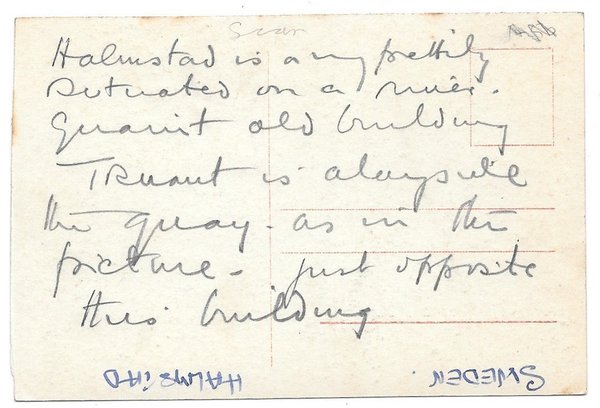 Scan
Halmstad is a very prettily
situated on a river.
Quaint old building
TRuant is alongside
the quay - as in the
picture - just opposite
this building
HALMSTAD
SWEDEN